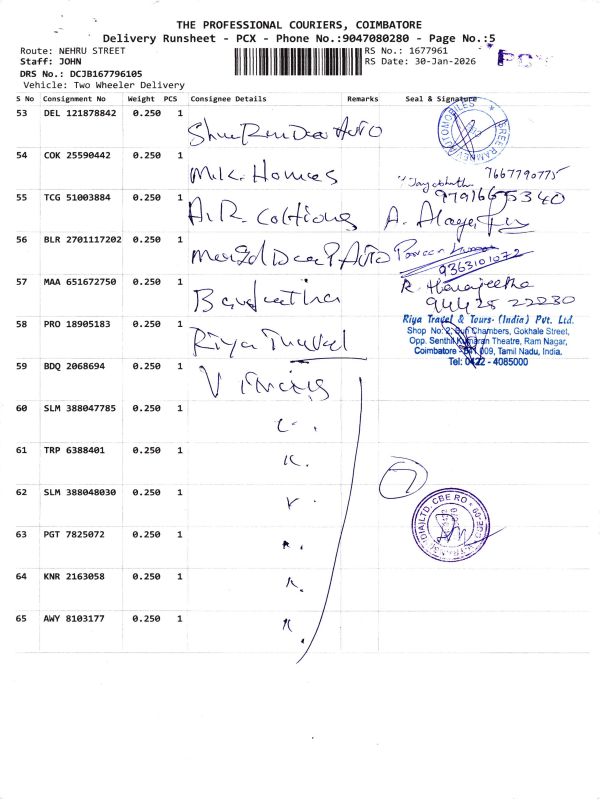 THE PROFESSIONAL COURIERS, COIMBATORE
Delivery Runsheet - PCX - Phone No.:9047080280 - Page No.:5
Route: NEHRU STREET
RS No.: 1677961
Staff: JOHN
RS Date: 30-Jan-2026
PCX
DRS No.: DCJB167796105
Vehicle: Two Wheeler Delivery
S No Consignment No Weight PCS Consignee Details Remarks Seal & Signature
53 DEL 121878842 0.250 1 Auto
AUTOMOBILES
54 COK 25590442 0.250 1 M.K. Homes
7667790775
55 TCG 51003884 0.250 1 A.R.
9791665340
A.
56 BLR 2701117202 0.250 1 Auto
9363101072
57 MAA 651672750 0.250 1
R.
94425 22230
58 PRO 18905183 0.250 1 Riya Travel
Riya Travel & Tours (India) Pvt. Ltd.
Shop No. 2, Sun Chambers, Gokhale Street,
Opp. Senthil Kumaran Theatre, Ram Nagar,
Coimbatore - 641 009, Tamil Nadu, India.
Tel: 0422 - 4085000
59 BDQ 2068694 0.250 1
60 SLM 388047785 0.250 1
61 TRP 6388401 0.250 1
7
62 SLM 388048030 0.250 1
63 PGT 7825072 0.250 1
64 KNR 2163058 0.250 1
65 AWY 8103177 0.250 1